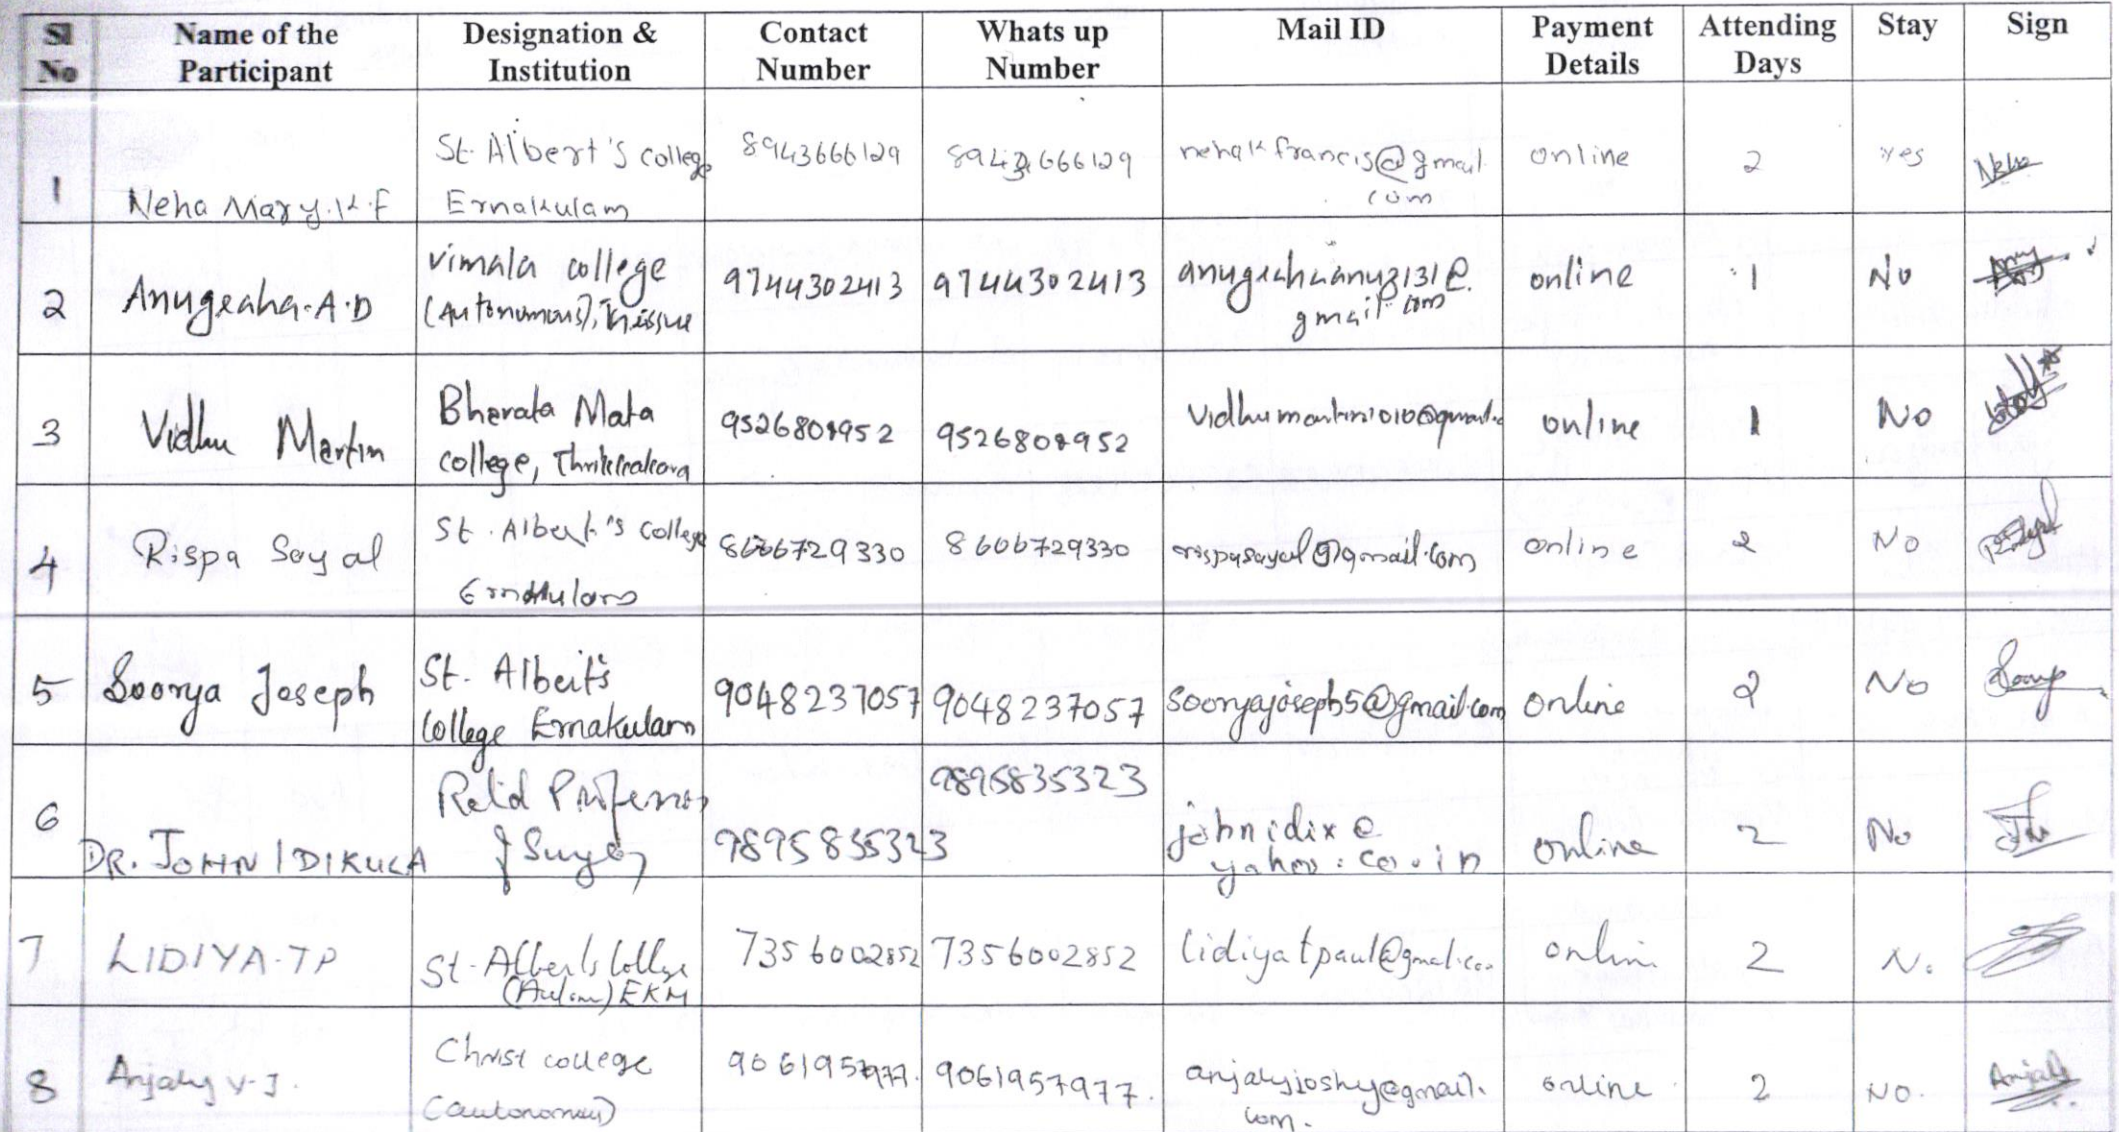 Sl No | Name of the Participant | Designation & Institution | Contact Number | Whats up Number | Mail ID | Payment Details | Attending Days | Stay | Sign
1 | Neha Mary.K.F | St. Albert's College Ernakulam | 8943666129 | 8943666129 | nehakfrancis@gmail.com | online | 2 | yes | Neha
2 | Anugraha.A.D | vimala college (Autonomous), Thrissur | 9744302413 | 9744302413 | gmail.com | online | 1 | No
3 | Vidhu Martin | Bharata Mata college, Thrikkakara | online | 1 | No
4 | Rispa Sayal | St. Albert's College Ernakulam | 8606729330 | 8606729330 | rispasayal@gmail.com | online | 2 | No
5 | Soorya Joseph | St. Albert's College Ernakulam | 9048237057 | 9048237057 | sooryajoseph5@gmail.com | online | 2 | No
6 | DR. JOHN IDIKULA | Retd Professor | 9895835323 | 9895835323 | johnidix@yahoo.co.in | online | 2 | No
7 | LIDIYA-TP | St. Alberts College (Autom) EKM | 7356002852 | 7356002852 | lidiyatpaul@gmail.com | online | 2 | No
8 | Anjaly V.J. | Christ college (autonomous) | 9061957977. | 9061957977. | anjalyjoshy@gmail.com. | online | 2 | No. | Anjaly